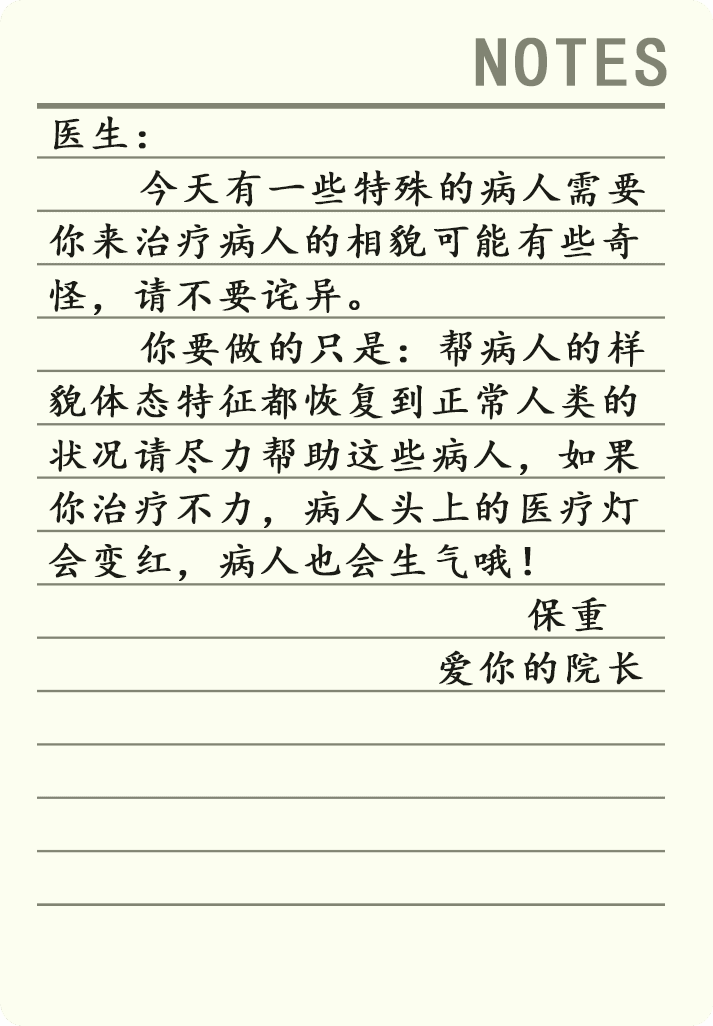 NOTES
医生：
今天有一些特殊的病人需要
你来治疗病人的相貌可能有些奇
怪，请不要诧异。
你要做的只是：帮病人的样
貌体态特征都恢复到正常人类的
状况请尽力帮助这些病人，如果
你治疗不力，病人头上的医疗灯
会变红，病人也会生气哦！
保重
爱你的院长